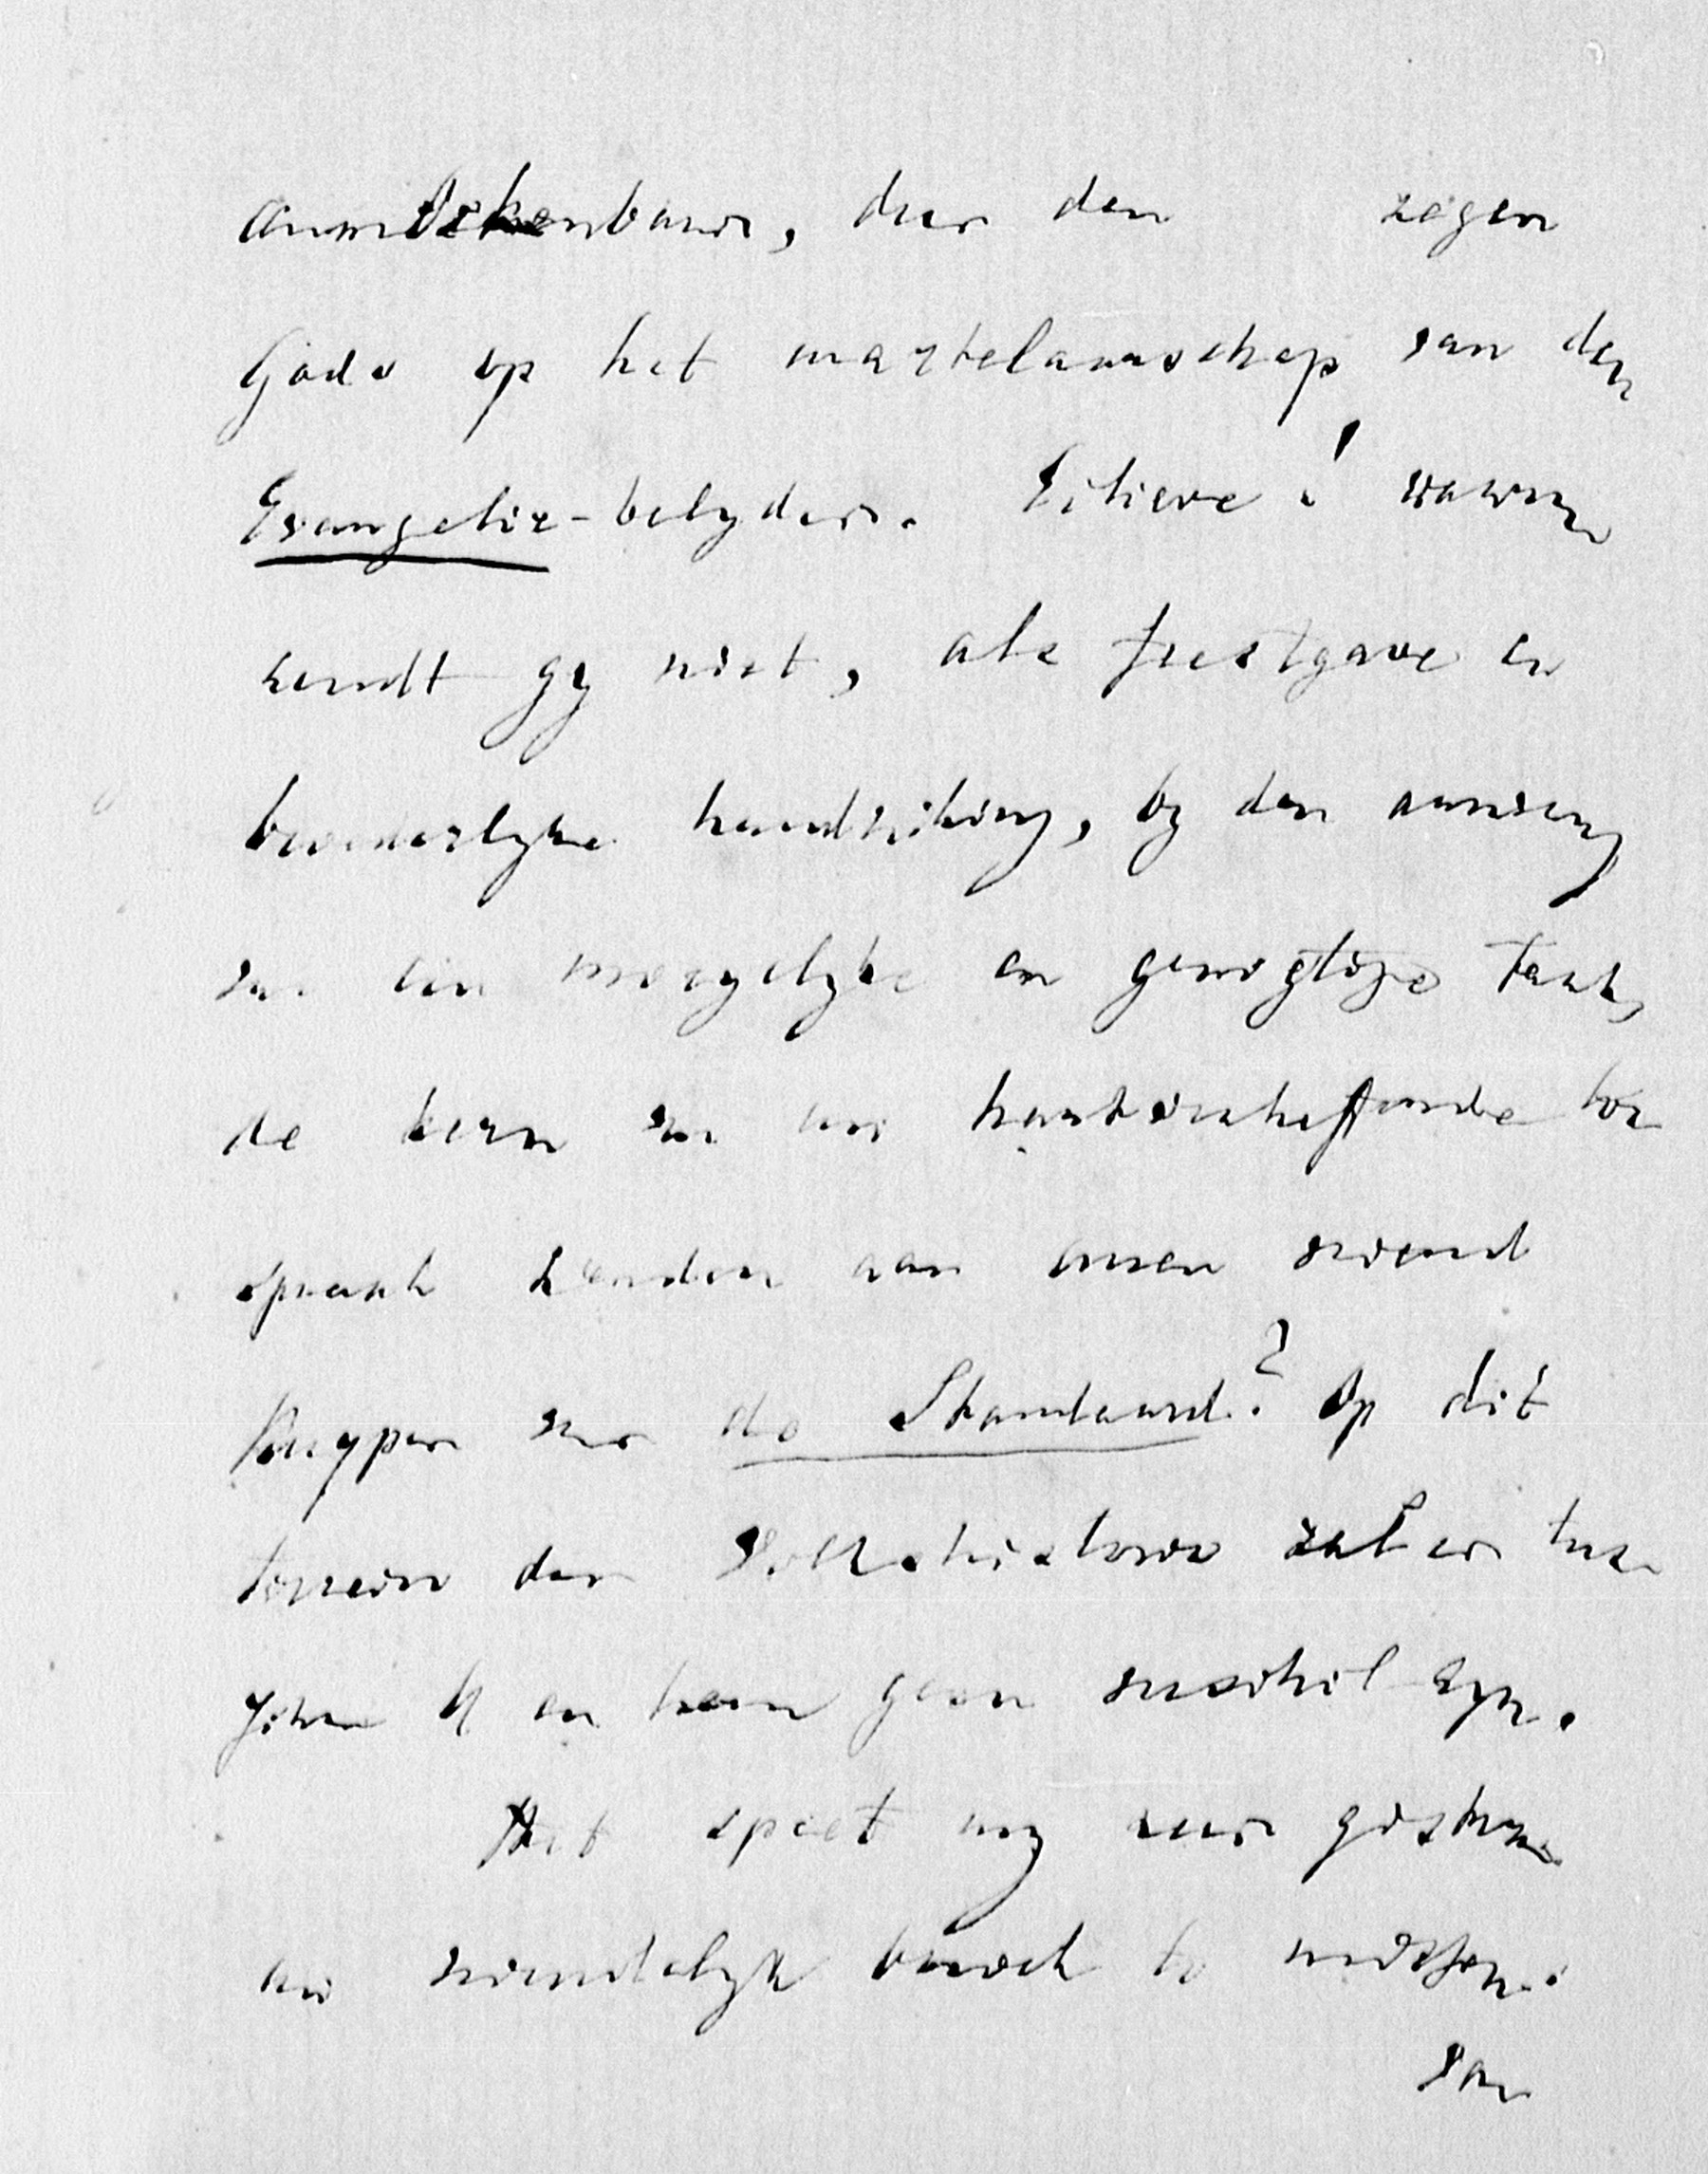 onmiskenbaar, door den zegen
Gods op het martelaarschap van den
Evangelie-belyder. Eilieve! waarom
zendt gy niet, als feestgave en
broederlyke handreiking, by den aanvang
van een moeyelyke en gewigtige taak,
de kern van uw hartverheffende toe
spraak zenden aan onzen vriend
Kuyper voor de Standaard? Op dit
terrein der Volkshistorie zal er tus
schen U en hem geen verschil zyn.
Het speet my zeer gisteren
uw vriendelyk bezoek te missen.
Van